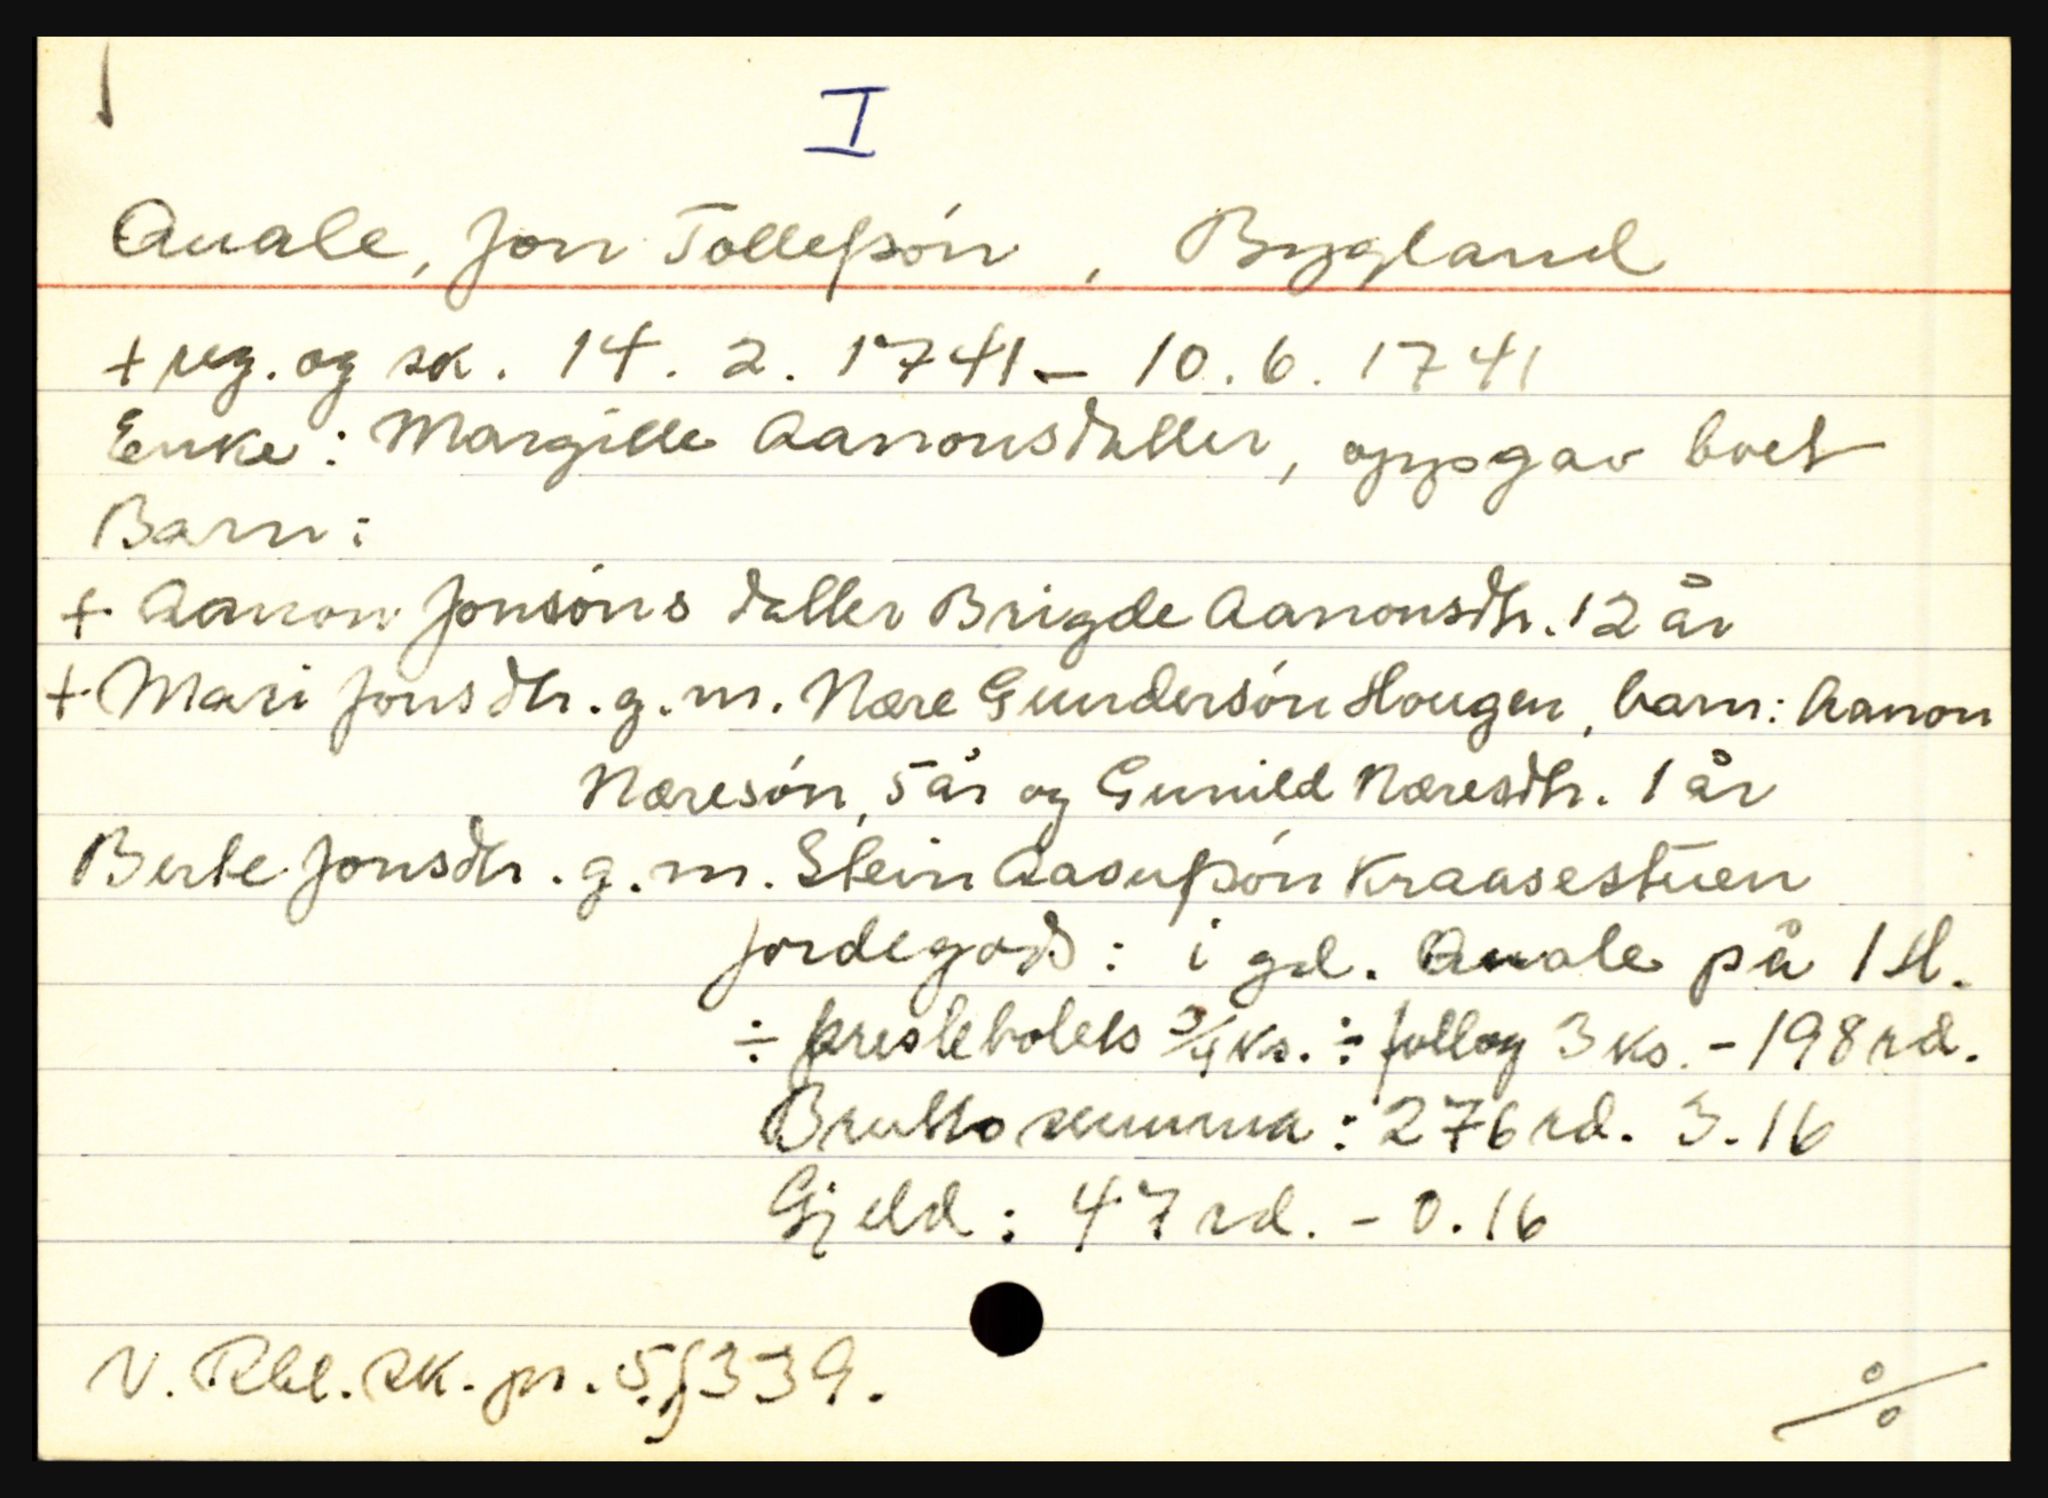 I
Auale, Jon Tollefsøn, Bygland
+ reg. og sk. 14. 2. 1741 - 10. 6. 1741
Enke: Margille Aanonsdatter, oppgav boet
Barn:
+ Aanon Jonsøns datter Brigde Aanonsdtr. 12 år
+ Mari Jonsdtr. g. m. Nære Gundersøn Hougen, barn: Aanon
Næresøn, 5 år og Gunild Næresdtr. 1 år
Berte Jonsdtr. g. m. Stein Aasufsøn Kraasestuen
Jordegods: i gd. Auale på 1 H.
÷ prestebolets 3/4 ks. ÷ follog 3 ks. - 198 rd.
Brutto summa: 276 rd. 3. 16
Gjeld: 47 rd. - 0. 16
V. Rbl. sk. pr. 5, f 339.
%